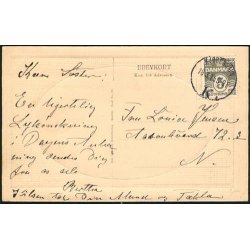 Kære Søster!
En hjertelig
Lykønskning
i Dagens Anled-
ning sendes Dig
fra os alle
Bertha
Hilsen til Din Mand og
BREVKORT
Kun til Adressen.
DANMARK
5
Fru Louise Jensen
12.2
N.